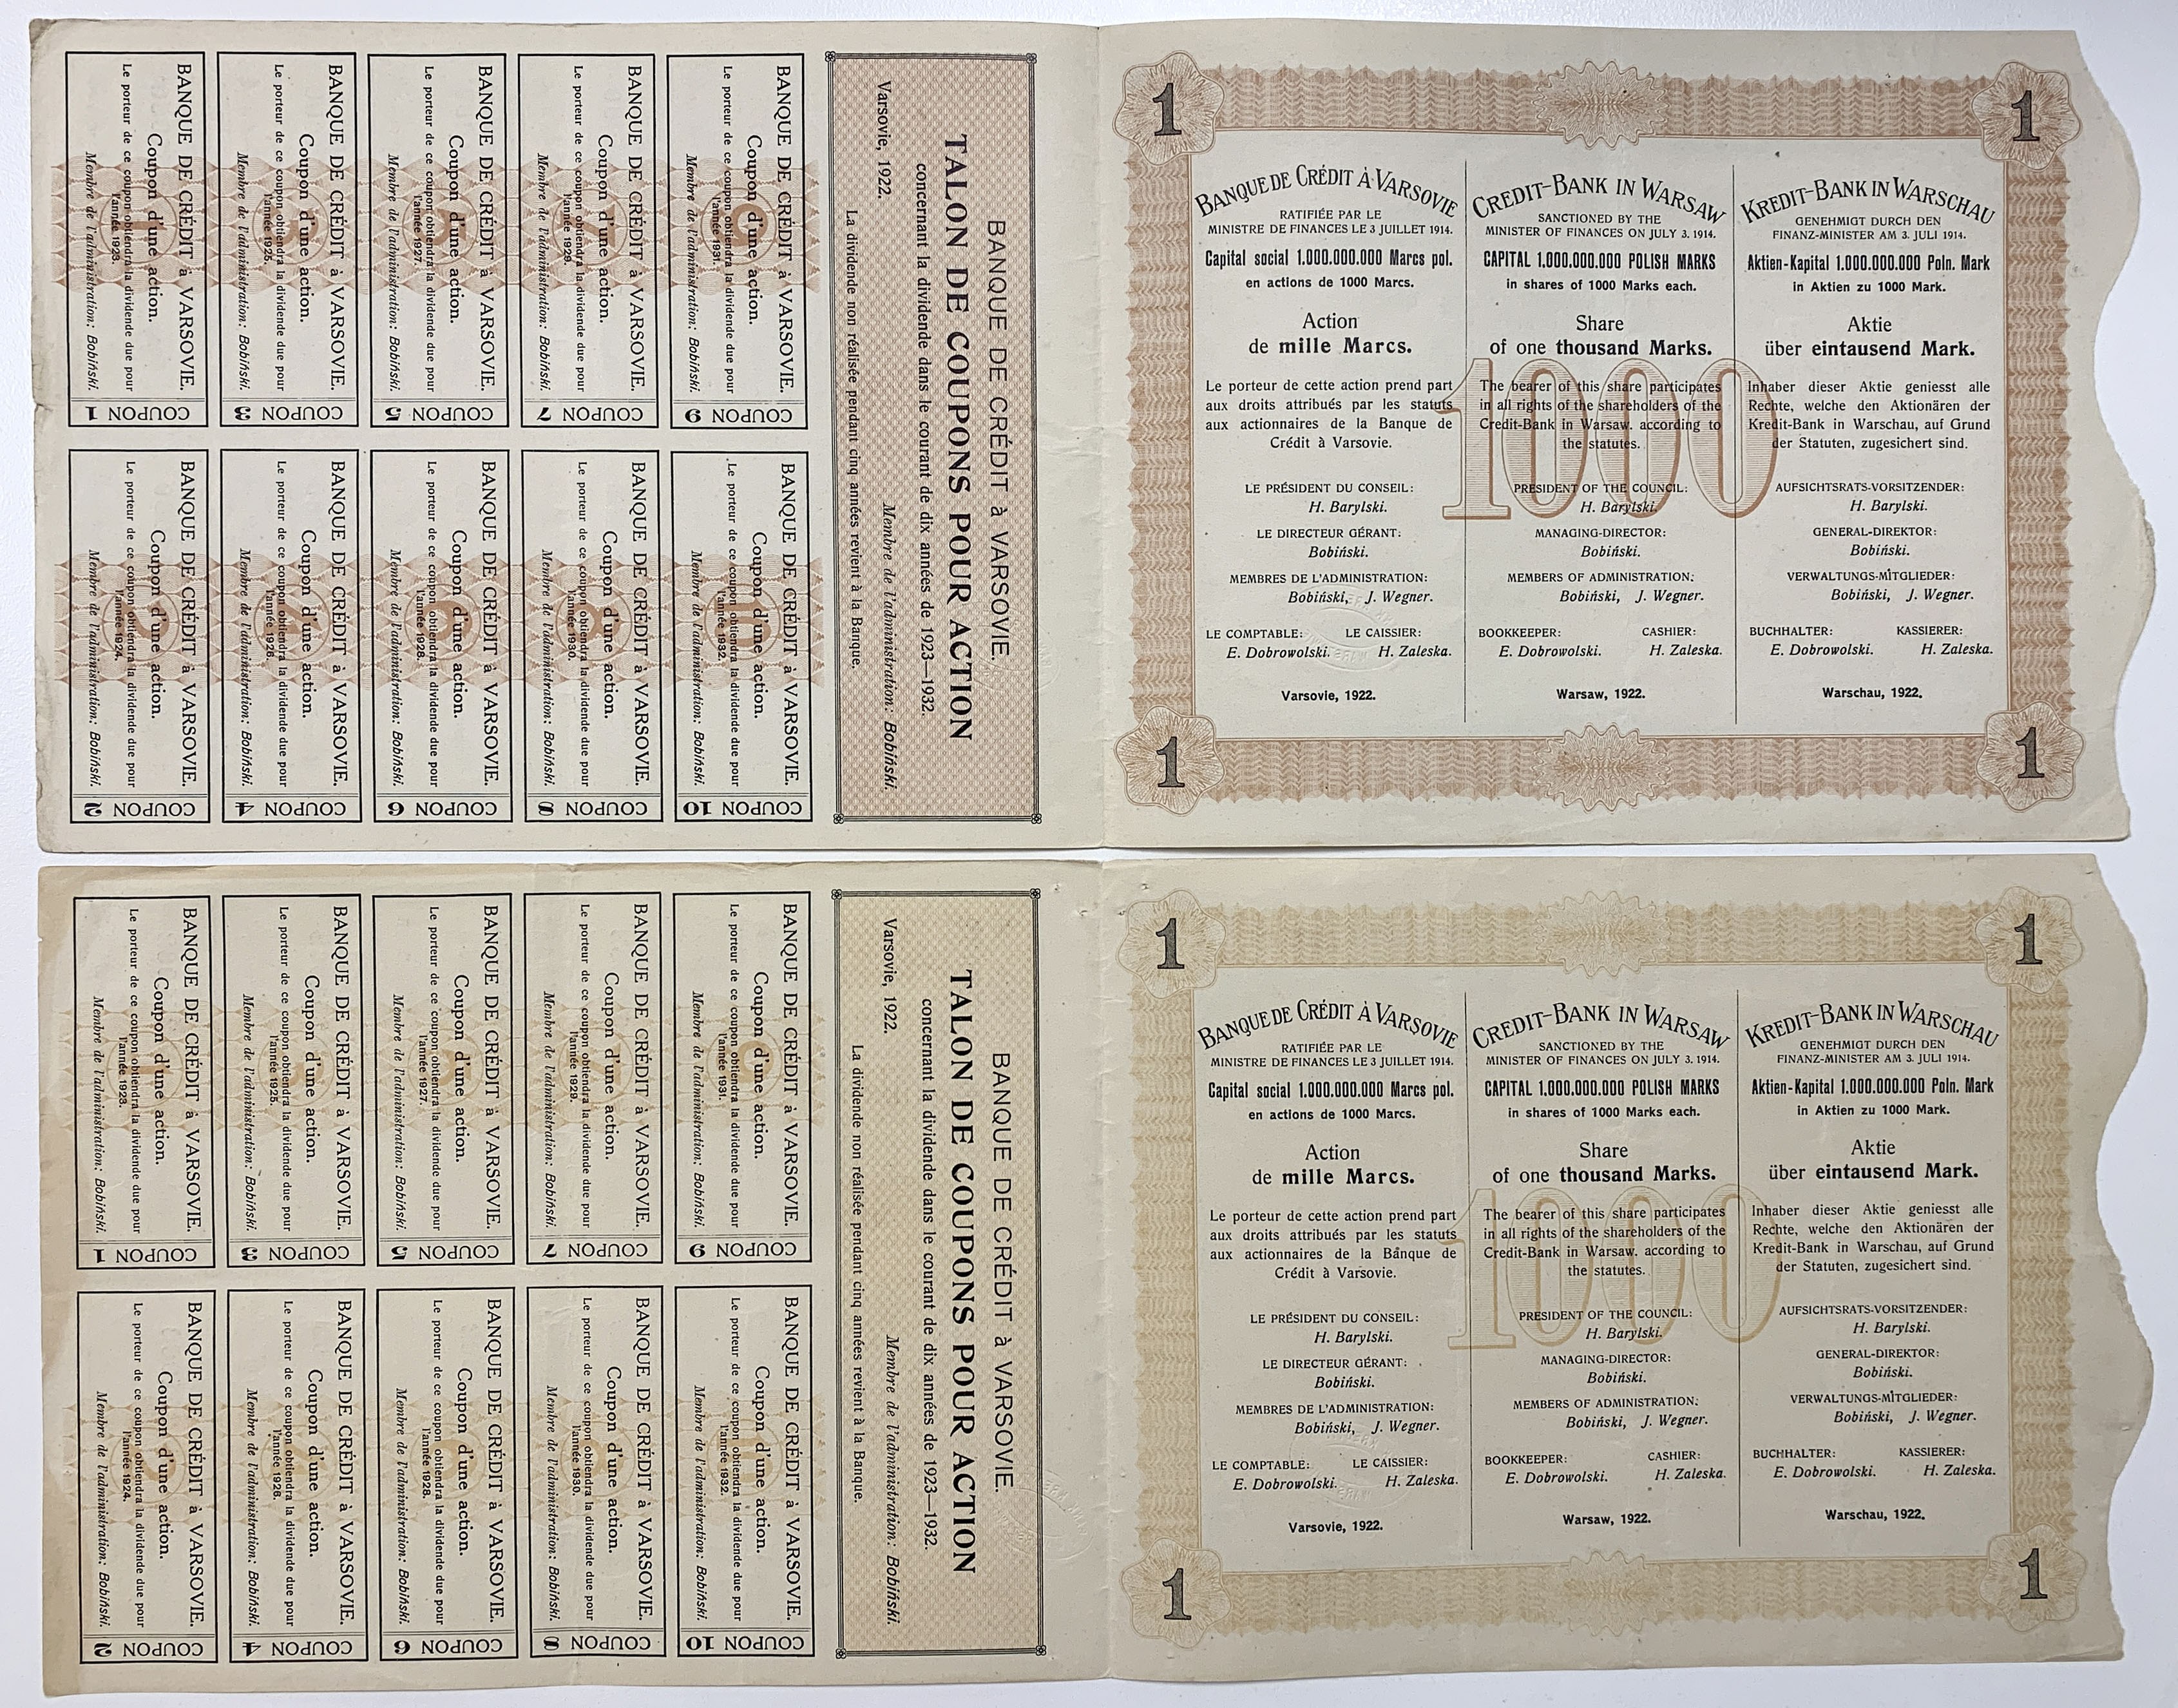 BANQUE DE CRÉDIT à VARSOVIE.
Coupon d'une action.
Le porteur de ce coupon obtiendra la dividende due pour
l'année 1923.
Membre de l'administration: Bobiński.
COUPON 1
BANQUE DE CRÉDIT à VARSOVIE.
Coupon d'une action.
Le porteur de ce coupon obtiendra la dividende due pour
l'année 1925.
Membre de l'administration: Bobiński.
COUPON 3
BANQUE DE CRÉDIT à VARSOVIE.
Coupon d'une action.
Le porteur de ce coupon obtiendra la dividende due pour
l'année 1927.
Membre de l'administration: Bobiński.
COUPON 5
BANQUE DE CRÉDIT à VARSOVIE.
Coupon d'une action.
Le porteur de ce coupon obtiendra la dividende due pour
l'année 1929.
Membre de l'administration: Bobiński.
COUPON 7
BANQUE DE CRÉDIT à VARSOVIE.
Coupon d'une action.
Le porteur de ce coupon obtiendra la dividende due pour
l'année 1931.
Membre de l'administration: Bobiński.
COUPON 9
BANQUE DE CRÉDIT à VARSOVIE.
Coupon d'une action.
Le porteur de ce coupon obtiendra la dividende due pour
l'année 1924.
Membre de l'administration: Bobiński.
COUPON 2
BANQUE DE CRÉDIT à VARSOVIE.
Coupon d'une action.
Le porteur de ce coupon obtiendra la dividende due pour
l'année 1926.
Membre de l'administration: Bobiński.
COUPON 4
BANQUE DE CRÉDIT à VARSOVIE.
Coupon d'une action.
Le porteur de ce coupon obtiendra la dividende due pour
l'année 1928.
Membre de l'administration: Bobiński.
COUPON 6
BANQUE DE CRÉDIT à VARSOVIE.
Coupon d'une action.
Le porteur de ce coupon obtiendra la dividende due pour
l'année 1930.
Membre de l'administration: Bobiński.
COUPON 8
BANQUE DE CRÉDIT à VARSOVIE.
Coupon d'une action.
Le porteur de ce coupon obtiendra la dividende due pour
l'année 1932.
Membre de l'administration: Bobiński.
COUPON 10
BANQUE DE CRÉDIT à VARSOVIE.
TALON DE COUPONS POUR ACTION
concernant la dividende dans le courant de dix années de 1923—1932.
Varsovie, 1922.
Membre de l'administration: Bobiński.
La dividende non réalisée pendant cinq années revient à la Banque.
1
1
BANQUE DE CRÉDIT À VARSOVIE
RATIFIÉE PAR LE
MINISTRE DE FINANCES LE 3 JUILLET 1914.
Capital social 1.000.000.000 Marcs pol.
en actions de 1000 Marcs.
Action
de mille Marcs.
Le porteur de cette action prend part
aux droits attribués par les statuts
aux actionnaires de la Banque de
Crédit à Varsovie.
LE PRÉSIDENT DU CONSEIL:
H. Barylski.
LE DIRECTEUR GÉRANT:
Bobiński.
MEMBRES DE L'ADMINISTRATION:
Bobiński, J. Wegner.
LE COMPTABLE: LE CAISSIER:
E. Dobrowolski. H. Zaleska.
Varsovie, 1922.
CREDIT-BANK IN WARSAW
SANCTIONED BY THE
MINISTER OF FINANCES ON JULY 3. 1914.
CAPITAL 1.000.000.000 POLISH MARKS
in shares of 1000 Marks each.
Share
of one thousand Marks.
1000
The bearer of this share participates
in all rights of the shareholders of the
Credit-Bank in Warsaw. according to
the statutes.
PRESIDENT OF THE COUNCIL:
H. Barylski.
MANAGING-DIRECTOR:
Bobiński.
MEMBERS OF ADMINISTRATION:
Bobiński, J. Wegner.
BOOKKEEPER: CASHIER:
E. Dobrowolski. H. Zaleska.
Warsaw, 1922.
KREDIT-BANK IN WARSCHAU
GENEHMIGT DURCH DEN
FINANZ-MINISTER AM 3. JULI 1914.
Aktien-Kapital 1.000.000.000 Poln. Mark
in Aktien zu 1000 Mark.
Aktie
über eintausend Mark.
Inhaber dieser Aktie geniesst alle
Rechte, welche den Aktionären der
Kredit-Bank in Warschau, auf Grund
der Statuten, zugesichert sind.
AUFSICHTSRATS-VORSITZENDER:
H. Barylski.
GENERAL-DIREKTOR:
Bobiński.
VERWALTUNGS-MITGLIEDER:
Bobiński, J. Wegner.
BUCHHALTER: KASSIERER:
E. Dobrowolski. H. Zaleska.
Warschau, 1922.
1
1
BANQUE DE CRÉDIT à VARSOVIE.
Coupon d'une action.
Le porteur de ce coupon obtiendra la dividende due pour
l'année 1923.
Membre de l'administration: Bobiński.
COUPON 1
BANQUE DE CRÉDIT à VARSOVIE.
Coupon d'une action.
Le porteur de ce coupon obtiendra la dividende due pour
l'année 1925.
Membre de l'administration: Bobiński.
COUPON 3
BANQUE DE CRÉDIT à VARSOVIE.
Coupon d'une action.
Le porteur de ce coupon obtiendra la dividende due pour
l'année 1927.
Membre de l'administration: Bobiński.
COUPON 5
BANQUE DE CRÉDIT à VARSOVIE.
Coupon d'une action.
Le porteur de ce coupon obtiendra la dividende due pour
l'année 1929.
Membre de l'administration: Bobiński.
COUPON 7
BANQUE DE CRÉDIT à VARSOVIE.
Coupon d'une action.
Le porteur de ce coupon obtiendra la dividende due pour
l'année 1931.
Membre de l'administration: Bobiński.
COUPON 9
BANQUE DE CRÉDIT à VARSOVIE.
Coupon d'une action.
Le porteur de ce coupon obtiendra la dividende due pour
l'année 1924.
Membre de l'administration: Bobiński.
COUPON 2
BANQUE DE CRÉDIT à VARSOVIE.
Coupon d'une action.
Le porteur de ce coupon obtiendra la dividende due pour
l'année 1926.
Membre de l'administration: Bobiński.
COUPON 4
BANQUE DE CRÉDIT à VARSOVIE.
Coupon d'une action.
Le porteur de ce coupon obtiendra la dividende due pour
l'année 1928.
Membre de l'administration: Bobiński.
COUPON 6
BANQUE DE CRÉDIT à VARSOVIE.
Coupon d'une action.
Le porteur de ce coupon obtiendra la dividende due pour
l'année 1930.
Membre de l'administration: Bobiński.
COUPON 8
BANQUE DE CRÉDIT à VARSOVIE.
Coupon d'une action.
Le porteur de ce coupon obtiendra la dividende due pour
l'année 1932.
Membre de l'administration: Bobiński.
COUPON 10
BANQUE DE CRÉDIT à VARSOVIE.
TALON DE COUPONS POUR ACTION
concernant la dividende dans le courant de dix années de 1923—1932.
Varsovie, 1922.
Membre de l'administration: Bobiński.
La dividende non réalisée pendant cinq années revient à la Banque.
1
1
BANQUE DE CRÉDIT À VARSOVIE
RATIFIÉE PAR LE
MINISTRE DE FINANCES LE 3 JUILLET 1914.
Capital social 1.000.000.000 Marcs pol.
en actions de 1000 Marcs.
Action
de mille Marcs.
Le porteur de cette action prend part
aux droits attribués par les statuts
aux actionnaires de la Banque de
Crédit à Varsovie.
LE PRÉSIDENT DU CONSEIL:
H. Barylski.
LE DIRECTEUR GÉRANT:
Bobiński.
MEMBRES DE L'ADMINISTRATION:
Bobiński, J. Wegner.
LE COMPTABLE: LE CAISSIER:
E. Dobrowolski. H. Zaleska.
Varsovie, 1922.
CREDIT-BANK IN WARSAW
SANCTIONED BY THE
MINISTER OF FINANCES ON JULY 3. 1914.
CAPITAL 1.000.000.000 POLISH MARKS
in shares of 1000 Marks each.
Share
of one thousand Marks.
1000
The bearer of this share participates
in all rights of the shareholders of the
Credit-Bank in Warsaw. according to
the statutes.
PRESIDENT OF THE COUNCIL:
H. Barylski.
MANAGING-DIRECTOR:
Bobiński.
MEMBERS OF ADMINISTRATION:
Bobiński, J. Wegner.
BOOKKEEPER: CASHIER:
E. Dobrowolski. H. Zaleska.
Warsaw, 1922.
KREDIT-BANK IN WARSCHAU
GENEHMIGT DURCH DEN
FINANZ-MINISTER AM 3. JULI 1914.
Aktien-Kapital 1.000.000.000 Poln. Mark
in Aktien zu 1000 Mark.
Aktie
über eintausend Mark.
Inhaber dieser Aktie geniesst alle
Rechte, welche den Aktionären der
Kredit-Bank in Warschau, auf Grund
der Statuten, zugesichert sind.
AUFSICHTSRATS-VORSITZENDER:
H. Barylski.
GENERAL-DIREKTOR:
Bobiński.
VERWALTUNGS-MITGLIEDER:
Bobiński, J. Wegner.
BUCHHALTER: KASSIERER:
E. Dobrowolski. H. Zaleska.
Warschau, 1922.
1
1